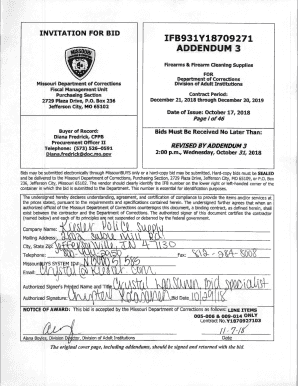 INVITATION FOR BID
Missouri Department of Corrections
Fiscal Management Unit
Purchasing Section
2729 Plaza Drive, P.O. Box 236
Jefferson City, MO 65102
Buyer of Record:
Diana Fredrick, CPPB
Procurement Officer II
Telephone: (573) 526-0591
Diana.fredrick@doc.mo.gov
IFB931Y18709271
ADDENDUM 3
Firearms & Firearm Cleaning Supplies
FOR
Department of Corrections
Division of Adult Institutions
Contract Period:
December 21, 2018 through December 20, 2019
Date of Issue: October 17, 2018
Page 1 of 46
Bids Must Be Received No Later Than:
REVISED BY ADDENDUM 3
2:00 p.m., Wednesday, October 31, 2018
Bids may be submitted electronically through MissouriBUYS or a hard-copy bid may be submitted. Hard-copy bids must be SEALED
and be delivered to the Missouri Department of Corrections, Purchasing Section, 2729 Plaza Drive, Jefferson City, MO 65109, or P.O. Box
236, Jefferson City, Missouri 65102. The vendor should clearly identify the IFB number on the lower right or left-handed corner of the
container in which the bid is submitted to the Department. This number is essential for identification purposes.
The undersigned hereby declares understanding, agreement, and certification of compliance to provide the items and/or services at
the prices stated, pursuant to the requirements and specifications contained herein. The undersigned further agrees that when an
authorized official of the Missouri Department of Corrections countersigns this document, a binding contract, as defined herein, shall
exist between the contractor and the Department of Corrections. The authorized signer of this document certifies the contractor
(named below) and each of its principals are not suspended or debarred by the federal government.
Company Name: Kiesler Police Supply
Mailing Address: 2802 Sable Mill
City, State Zip: Jeffersonville, IN 47130
Telephone: Fax: 812-284-
MissouriBUYS SYSTEM ID:
Email:
Authorized Signer's Printed Name and Title: Crystal bid specialist
Authorized Signature: Bid Date: 10/29/18
NOTICE OF AWARD: This bid is accepted by the Missouri Department of Corrections as follows: LINE ITEMS
005-008 & 009-014 ONLY
Contract No. Y18709271
11-7-18
Alana Boyles, Division Director, Division of Adult Institutions Date
The original cover page, including addendums, should be signed and returned with the bid.